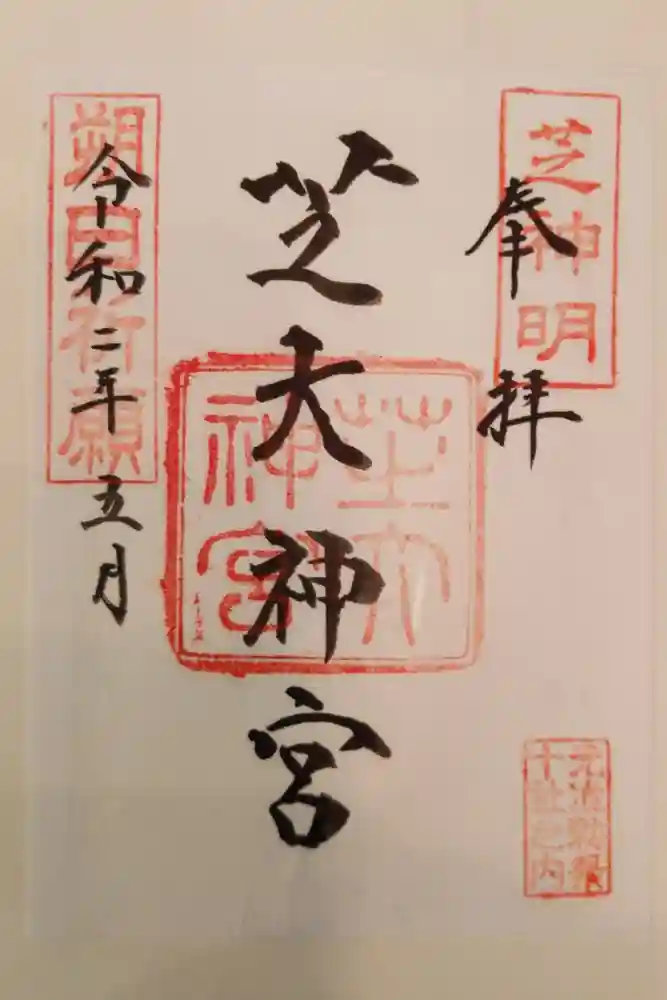 芝神明
奉拝
元准勅祭
十社之内
芝大神宮
芝大
神宮
朔日祈願
令和二年五月